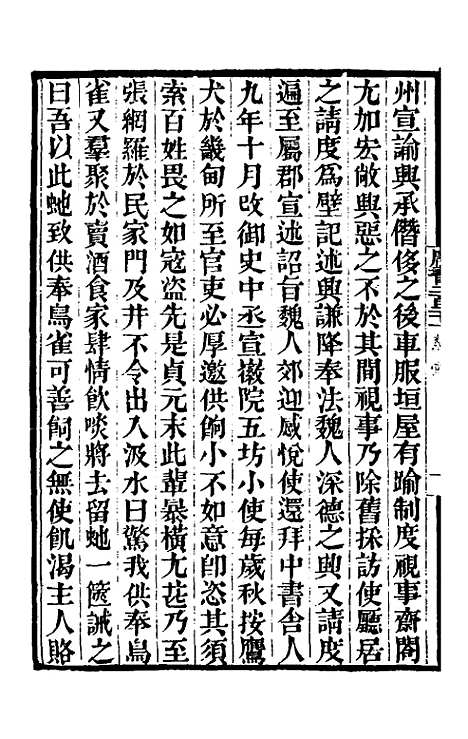 州宣諭興承僭侈之後車服垣屋有踰制度視事齋閤
尤加宏敞興惡之不於其間視事乃除舊採訪使廳居
之請度爲壁記述興謙降奉法魏人深德之興又請度
遍至屬郡宣述詔旨魏人郊迎感悅使還拜中書舍人
九年十月改御史中丞宣徽院五坊小使每歲秋按鷹
犬於畿甸所至官吏必厚邀供餉小不如意卽恣其須
索百姓畏之如寇盜先是貞元末此輩暴橫尤甚乃至
張網羅於民家門及井不令出入汲水曰驚我供奉鳥
雀又羣聚於賣酒食家肆情飮啖將去留虵一篋誡之
曰吾以此虵致供奉鳥雀可善飼之無使飢渴主人賂